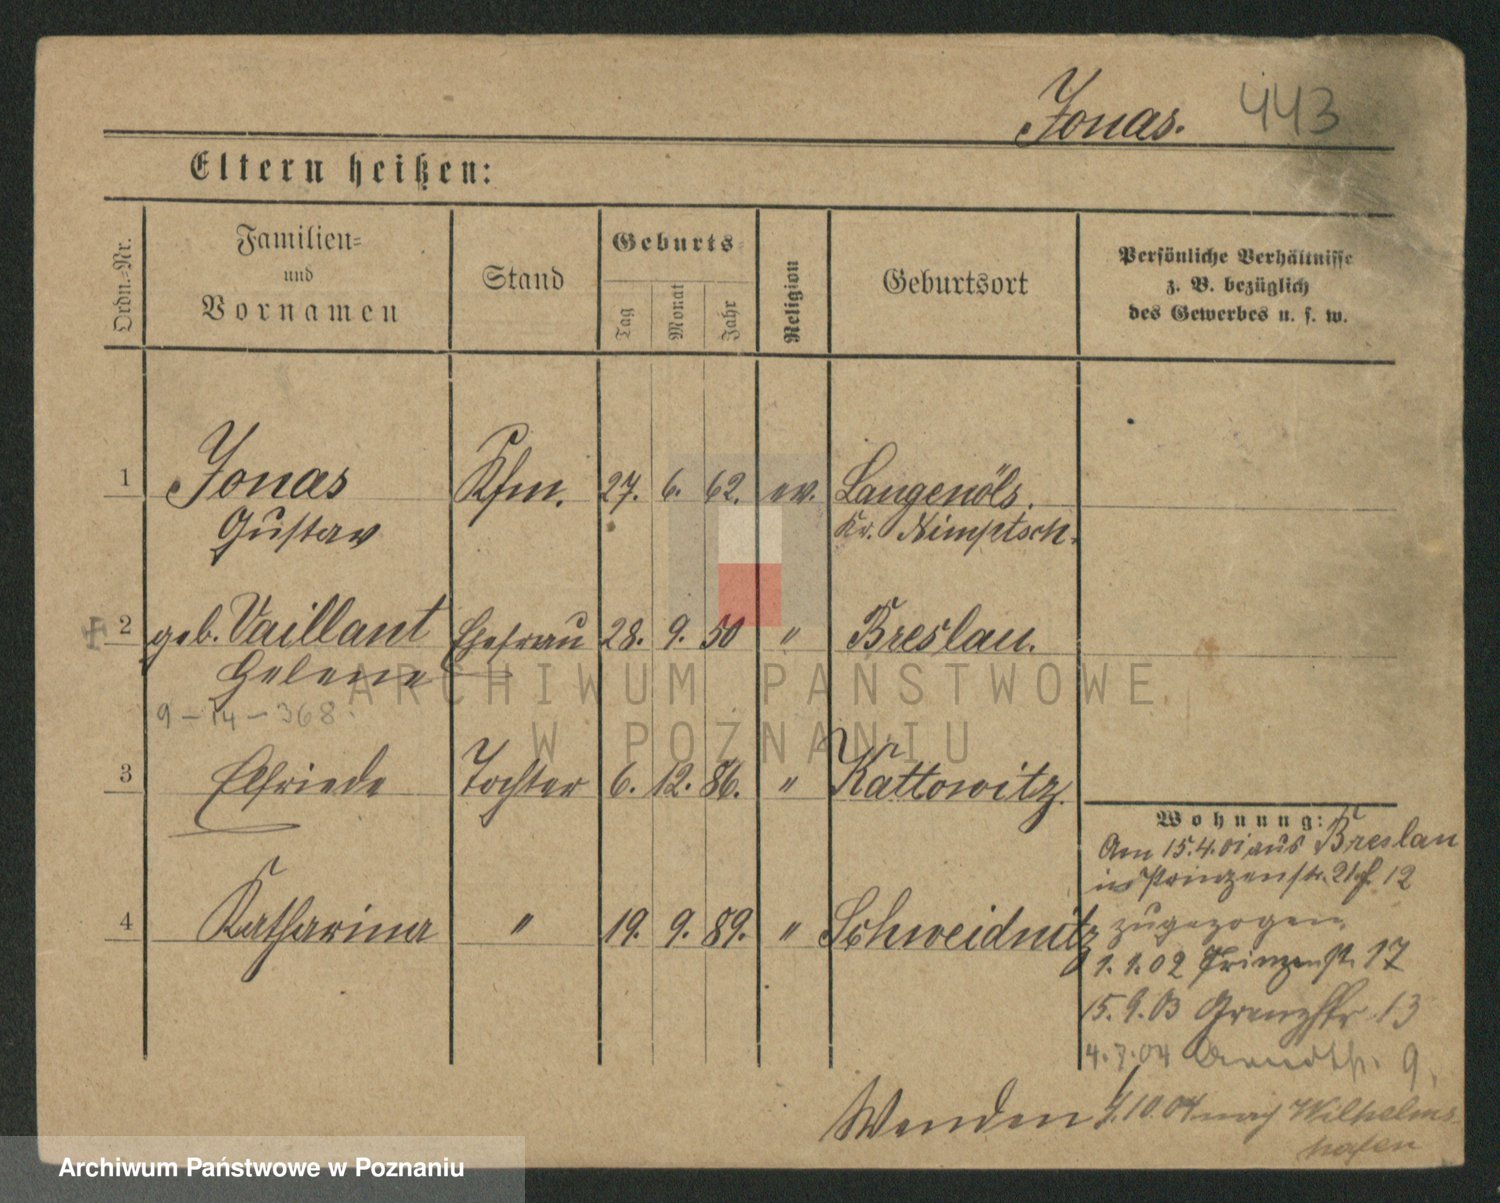 Jonas. 443
Eltern heißen:
Ordn.-Nr.
Familien-
und
Vornamen
Stand
Geburts-
Tag
Monat
Jahr
Religion
Geburtsort
Persönliche Verhältnisse
z. B. bezüglich
des Gewerbes u. s. w.
1 Jonas Kfm. 27. 6. 62. ev. Langenöls.
Gustav Kr. Nimptsch.
2 geb. Vaillant Ehefrau 28. 9. 50 " Breslau.
Helene
9-14-368.
3 Elfriede Tochter 6. 12. 86. " Kattowitz.
4 Katharina " 19. 9. 89. " Schweidnitz
Wohnung:
Am 15.4.01 aus Breslau
in Prinzenstr. 12
zugezogen.
1.1.02 Prinzenstr. 17
15.9.03 Grenzstr 13
4.7.04 Arndtstr. 9.
Wenden 4.10.04 nach Wilhelms-
hafen
ARCHIWUM PAŃSTWOWE
W POZNANIU
Archiwum Państwowe w Poznaniu